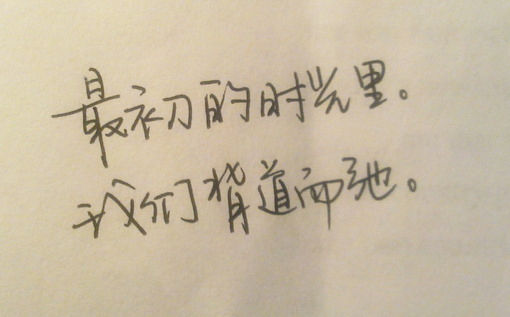 最初的时光里。
我们背道而弛。